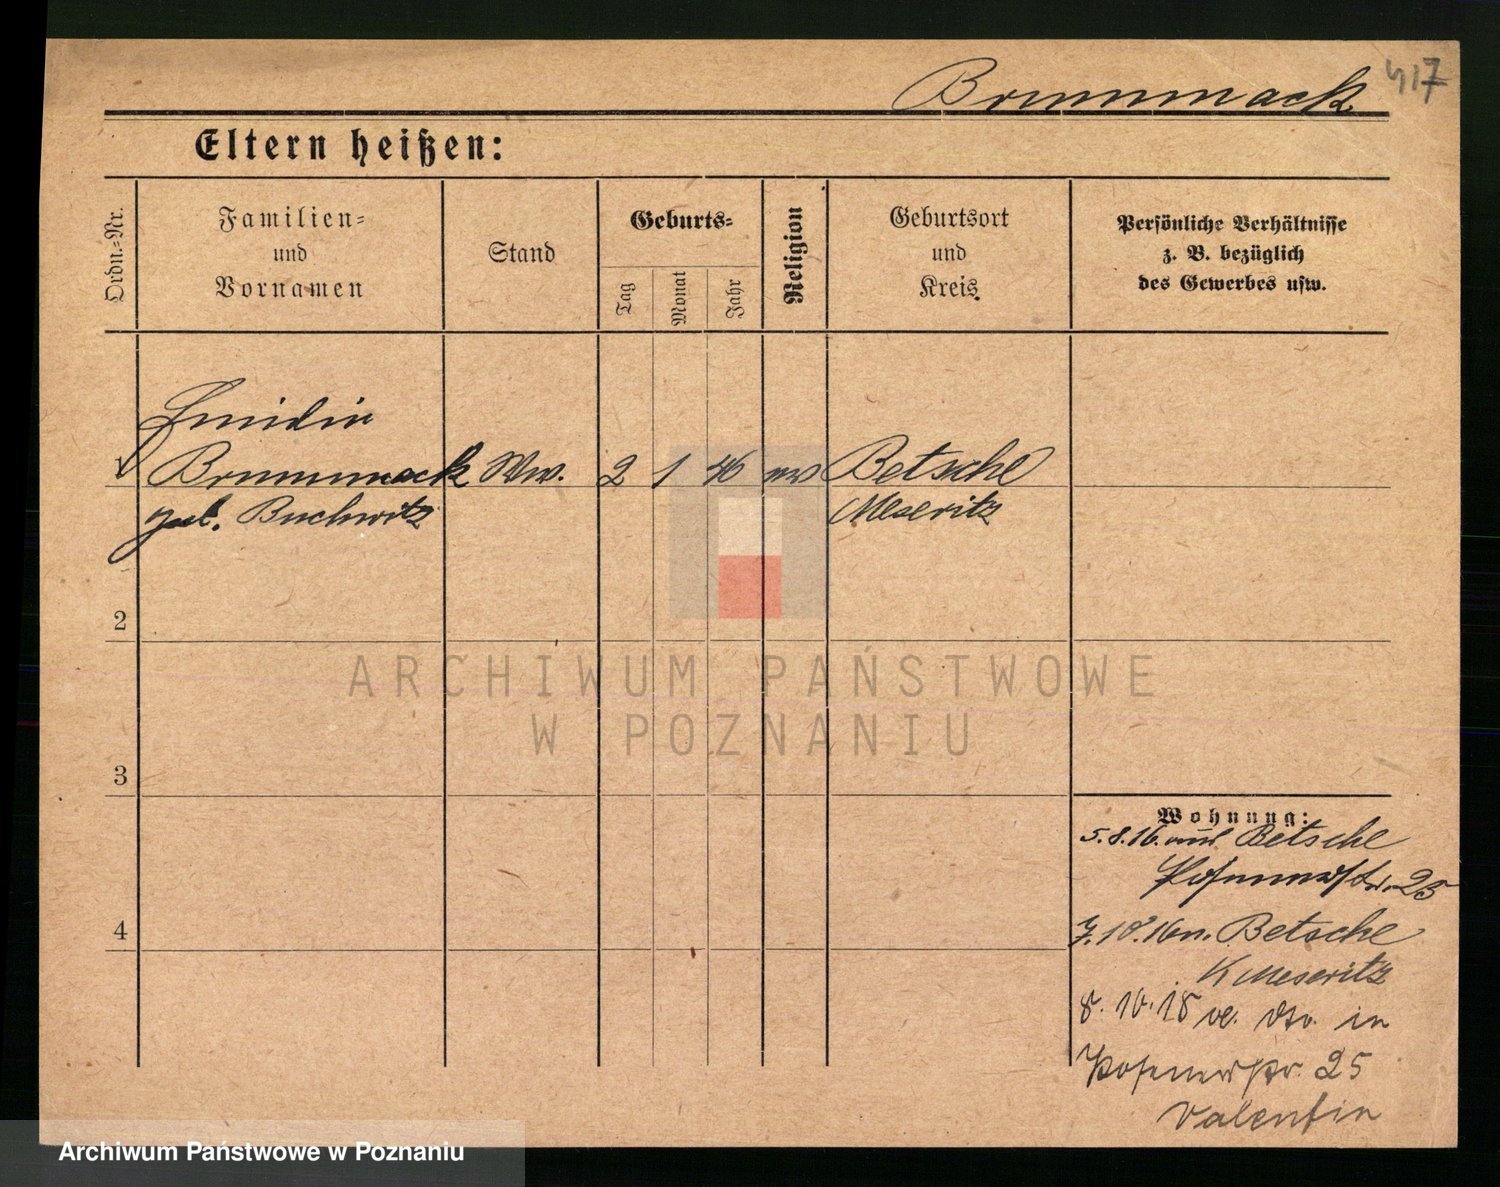 Brummack
417
Eltern heißen:
Ordn.-Nr.
Familien-
und
Vornamen
Stand
Geburts-
Tag
Monat
Jahr
Religion
Geburtsort
und
Kreis
Persönliche Verhältnisse
z. B. bezüglich
des Gewerbes usw.
Brummack Ww. 2 1 46 Betsche
geb. Buchwitz Meseritz
2
3
4
Wohnung:
5.8.16. Betsche
Posenerstr. 25
7.10.16 n. Betsche
K Meseritz
8.10.18 in
Posenerstr. 25
Valentin
ARCHIWUM PAŃSTWOWE
W POZNANIU
Archiwum Państwowe w Poznaniu